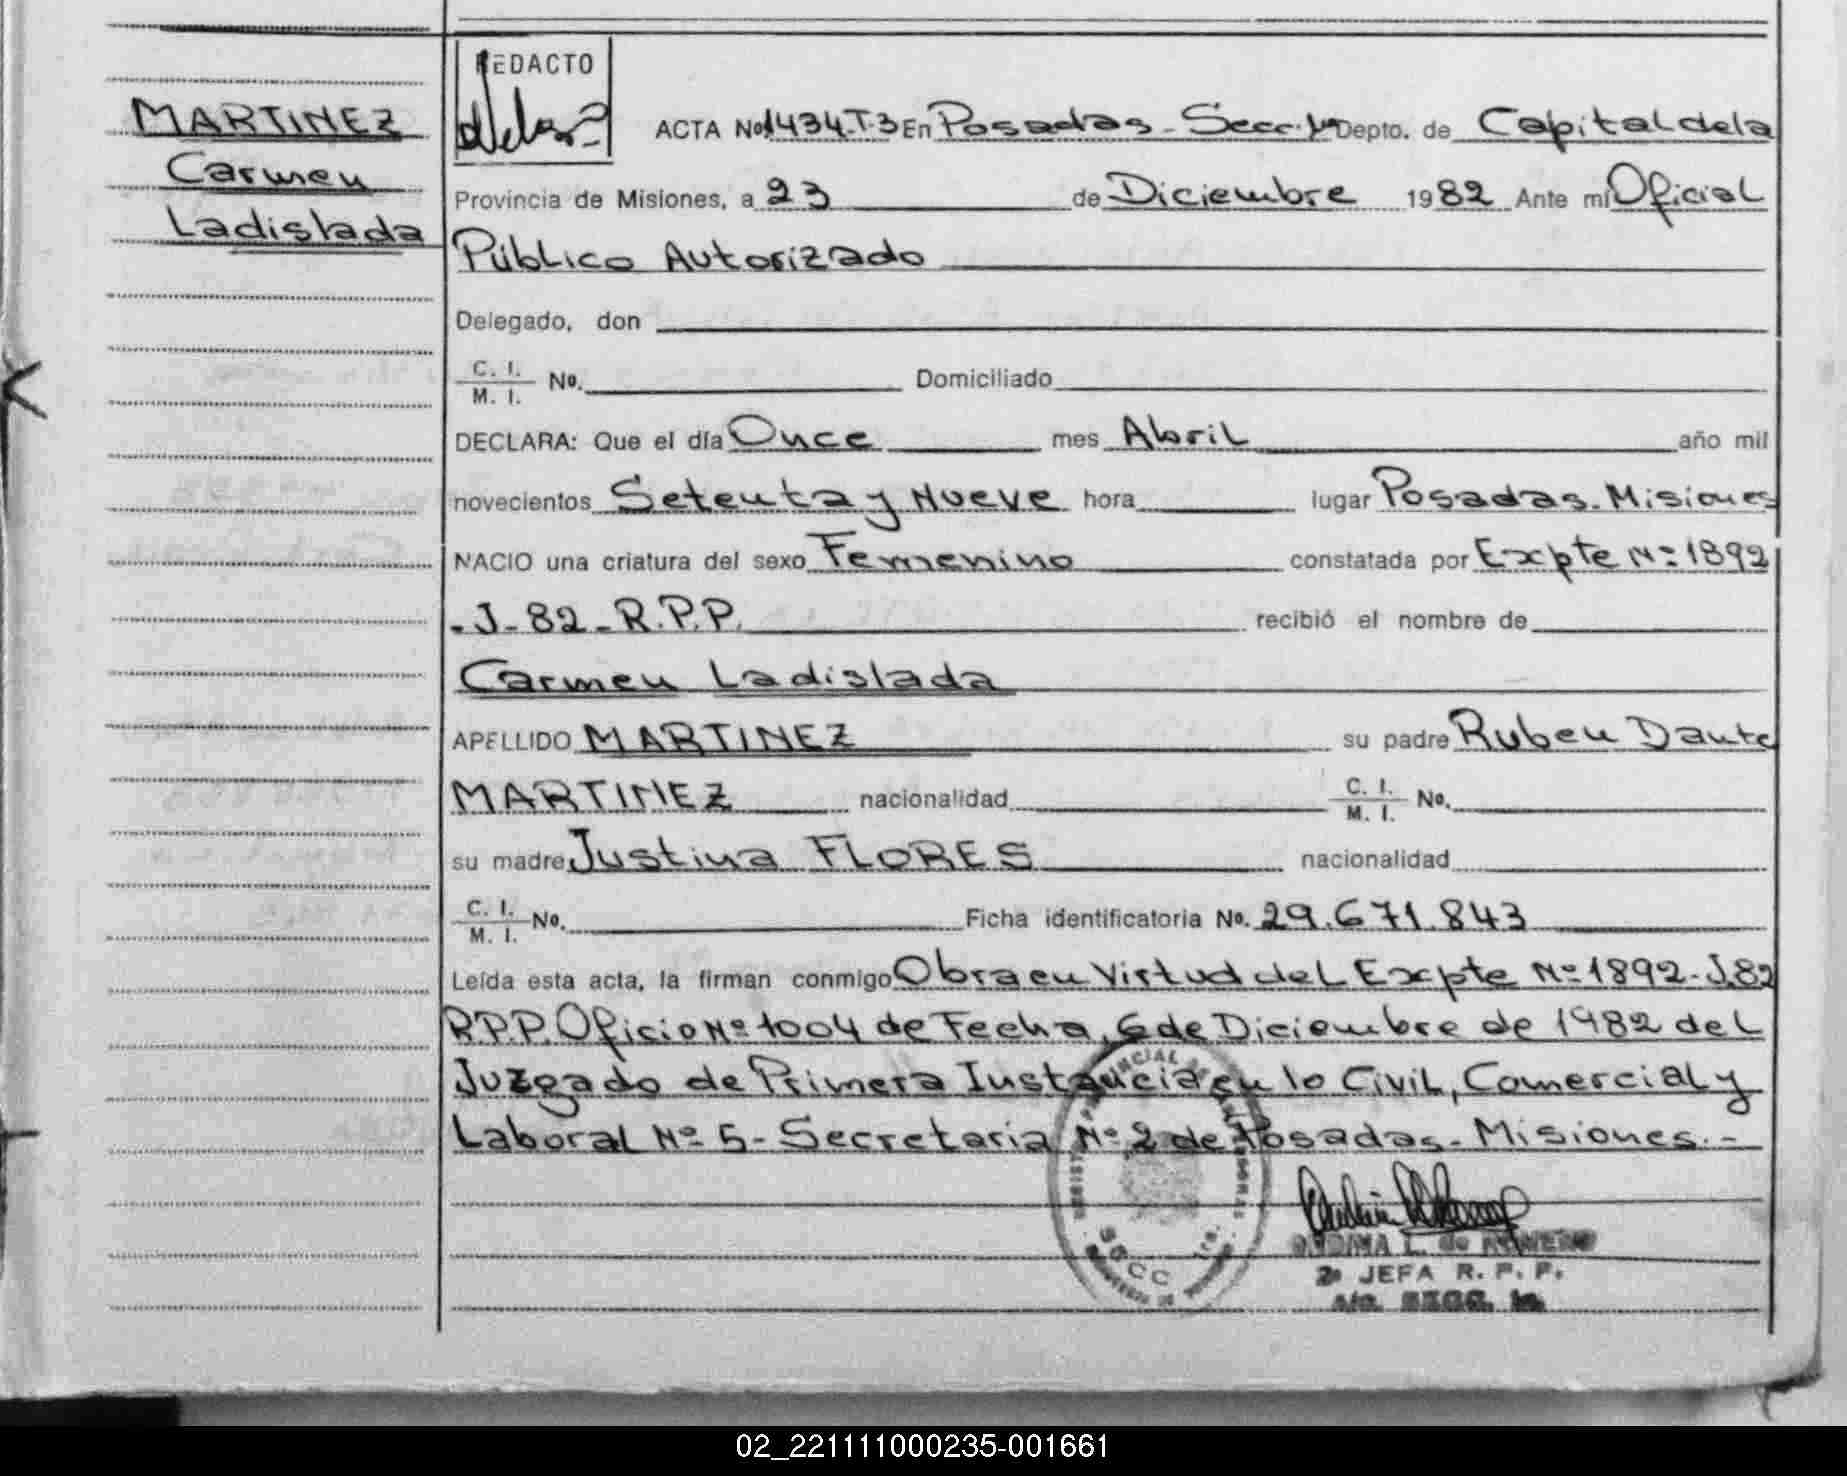 MARTINEZ
Carmen
Ladislada
REDACTO
ACTA No 1434.T.3 En Posadas - Secc. 1ª Depto. de Capital de la
Provincia de Misiones, a 23 de Diciembre 1982 Ante mí Oficial
Público Autorizado
Delegado, don
C. I.
M. I. No. Domiciliado
DECLARA: Que el día Once mes Abril año mil
novecientos Setenta y Nueve hora lugar Posadas. Misiones
NACIO una criatura del sexo Femenino constatada por Expte Nº 1892
-J-82-R.P.P. recibió el nombre de
Carmen Ladislada
APELLIDO MARTINEZ su padre Ruben Dante
MARTINEZ nacionalidad C. I. M. I. No.
su madre Justina FLORES nacionalidad
C. I.
M. I. No. Ficha identificatoria No. 29.671.843
Leída esta acta, la firman conmigo Obra en Virtud del Expte Nº 1892-J.82
R.P.P. Oficio Nº 1004 de Fecha, 6 de Diciembre de 1982 del
Juzgado de Primera Instancia en lo Civil, Comercial y
Laboral Nº 5 - Secretaria Nº 2 de Posadas. Misiones.-
SECC 1ra.
ONDINA L. de ROMERO
2ª JEFA R. P. P.
A/C. SECC. 1a.
02_221111000235-001661